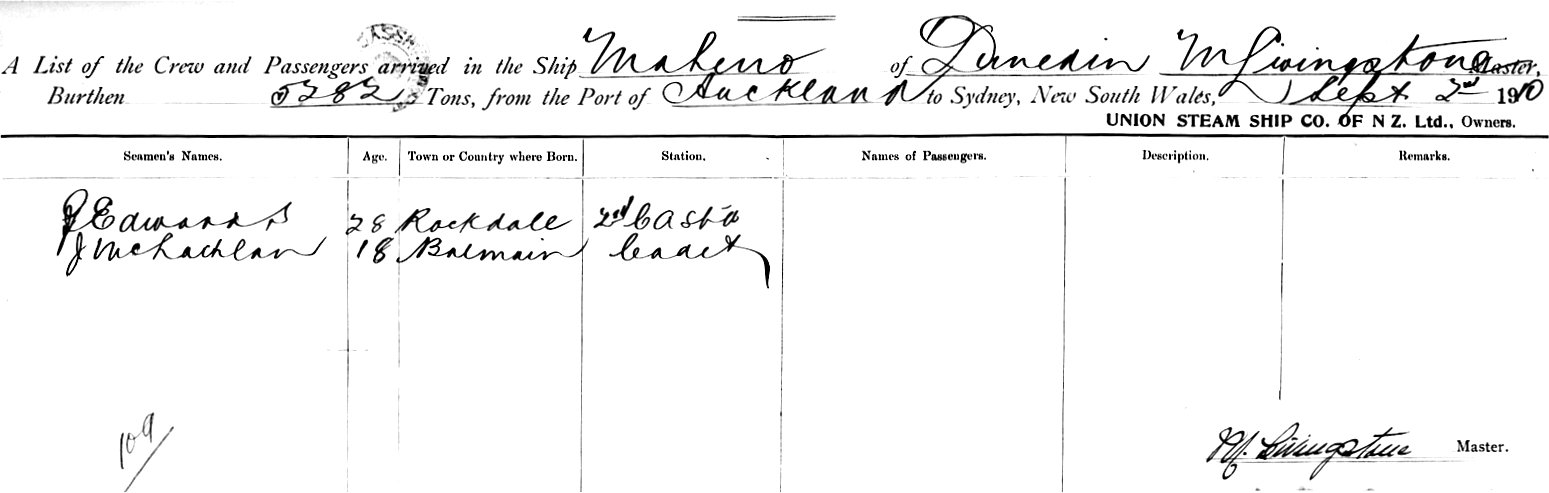 A List of the Crew and Passengers arrived in the Ship Maheno of Dunedin M Livingstone Master,
Burthen 5282 Tons, from the Port of Auckland to Sydney, New South Wales, Sept 2nd 1910
UNION STEAM SHIP CO. OF N Z. Ltd., Owners.
Seamen's Names. Age. Town or Country where Born. Station. Names of Passengers. Description. Remarks.
J Edwards 28 Rockdale 2nd
J McLachlan 18 Balmain Cadet
109
M. Livingstone Master.